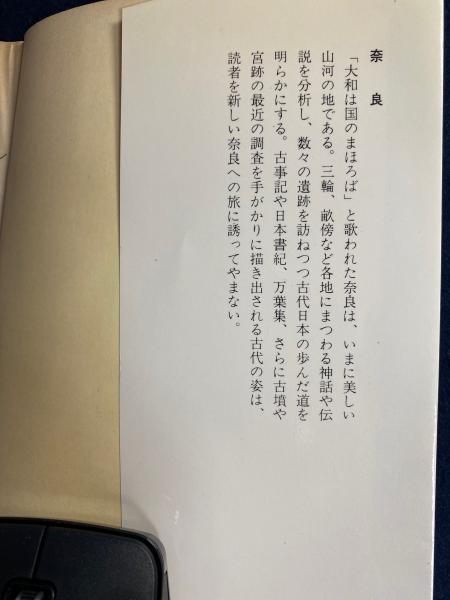 奈良
「大和は国のまほろば」と歌われた奈良は、いまに美しい
山河の地である。三輪、畝傍など各地にまつわる神話や伝
説を分析し、数々の遺跡を訪ねつつ古代日本の歩んだ道を
明らかにする。古事記や日本書紀、万葉集、さらに古墳や
宮跡の最近の調査を手がかりに描き出される古代の姿は、
読者を新しい奈良への旅に誘ってやまない。